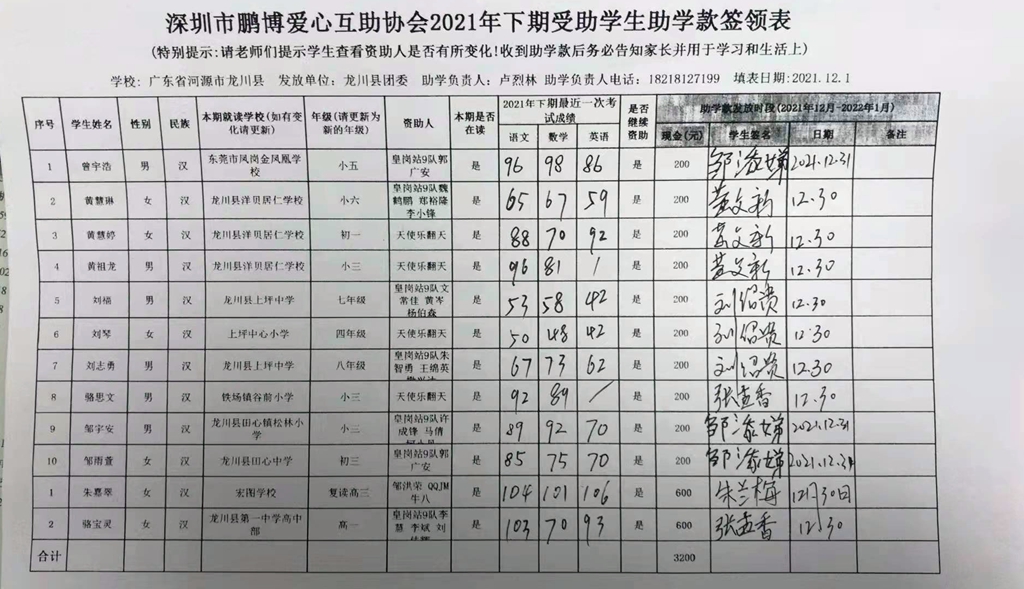 深圳市鹏博爱心互助协会2021年下期受助学生助学款签领表
(特别提示:请老师们提示学生查看资助人是否有所变化!收到助学款后务必告知家长并用于学习和生活上)
学校: 广东省河源市龙川县 发放单位: 龙川县团委 助学负责人: 卢烈林 助学负责人电话: 18218127199 填表日期:2021.12.1
序号 学生姓名 性别 民族 本期就读学校(如有变化请更新) 年级(请更新为新的年级) 资助人 本期是否在读 2021年下期最近一次考试成绩 是否继续资助 助学款发放时段(2021年12月-2022年1月)
语文 数学 英语 现金(元) 学生签名 日期 备注
1 曾宇浩 男 汉 东莞市凤岗金凤凰学校 小五 皇岗站9队郭广安 是 96 98 86 是 200 邹淼娣 2021.12.31
2 黄慧琳 女 汉 龙川县洋贝居仁学校 小六 皇岗站9队魏鹤鹏 郑裕隆 李小锋 是 65 67 59 是 200 黄文新 12.30
3 黄慧婷 女 汉 龙川县洋贝居仁学校 初一 天使乐翻天 是 88 70 92 是 200 黄文新 12.30
4 黄祖龙 男 汉 龙川县洋贝居仁学校 小三 天使乐翻天 是 96 81 / 是 200 黄文新 12.30
5 刘福 男 汉 龙川县上坪中学 七年级 皇岗站9队文常佳 黄岑 杨伯森 是 53 58 42 是 200 刘绍贵 12.30
6 刘琴 女 汉 上坪中心小学 四年级 天使乐翻天 是 50 48 42 是 200 刘绍贵 12.30
7 刘志勇 男 汉 龙川县上坪中学 八年级 皇岗站9队朱智勇 王绵英 是 67 73 62 是 200 刘绍贵 12.30
8 骆思文 男 汉 铁场镇谷前小学 小三 天使乐翻天 是 92 89 / 是 200 张孟香 12.30
9 邹宇安 男 汉 龙川县田心镇松林小学 小三 皇岗站9队许成锋 马倩 是 89 92 70 是 200 邹淼娣 2021.12.31
10 邹雨萱 女 汉 龙川县田心中学 初三 皇岗站9队郭广安 是 85 75 70 是 200 邹淼娣 2021.12.31
1 朱嘉翠 女 汉 宏图学校 复读高三 邹洪荣 QQJM牛八 是 104 101 106 是 600 朱兰梅 12月30日
2 骆宝灵 女 汉 龙川县第一中学高中部 高一 皇岗站9队李慧 李斌 刘 是 103 70 93 是 600 张孟香 12.30
合计 3200